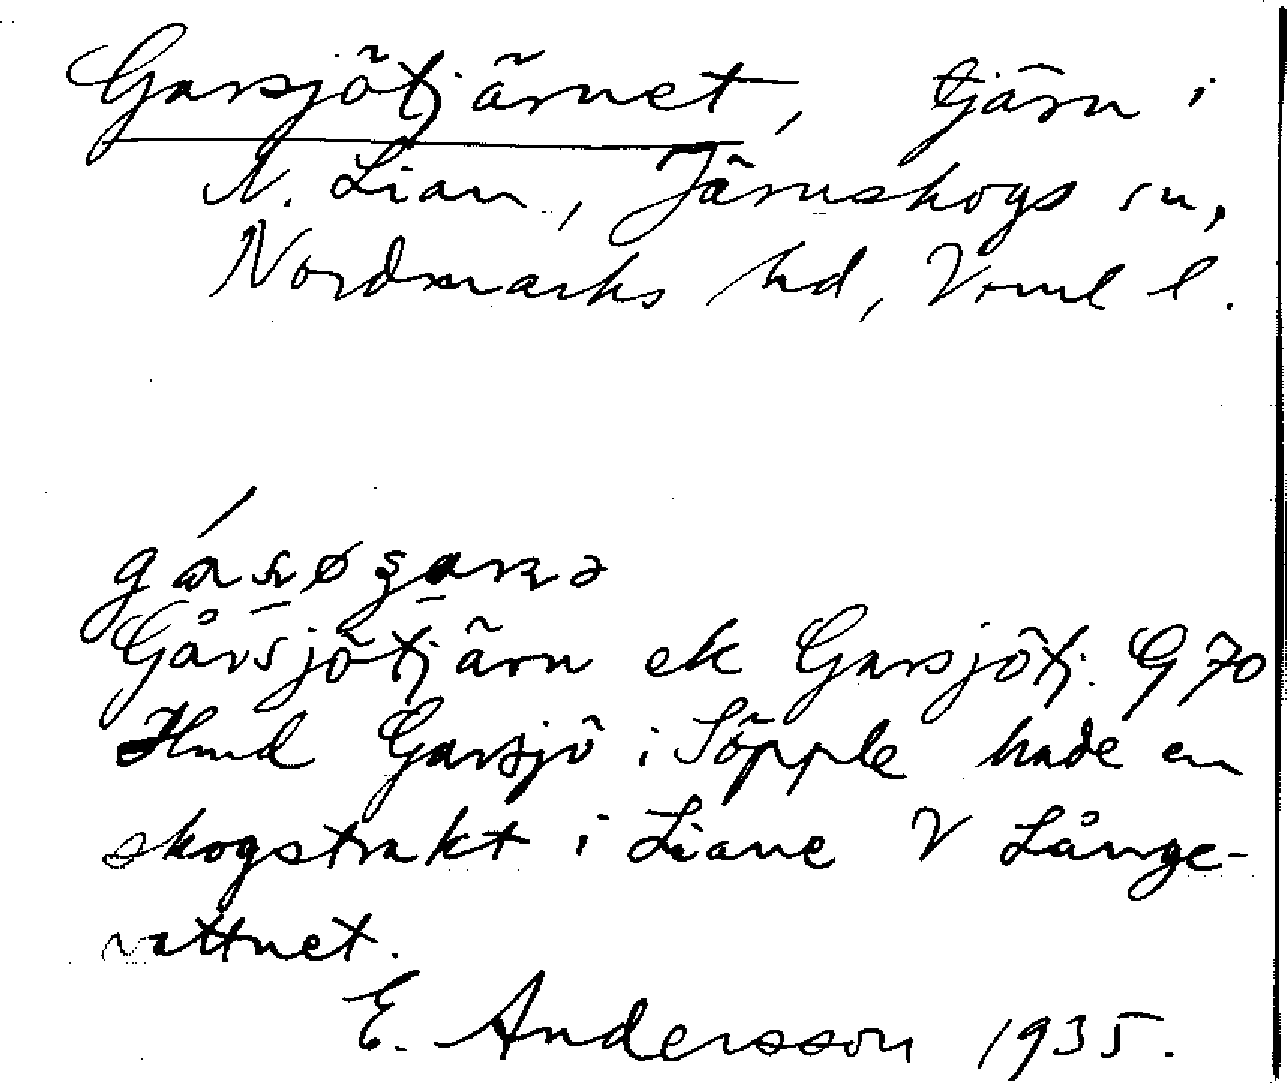 Garsjötjärnet, tjärn i
N. Lian, Järnskogs sn,
Nordmarks hd, Vrml l.
Gårsjötjärn ek Garsjötj. G 70
Hmd Garsjö i Söpple hade en
skogstrakt i Liane V Långe-
vattnet.
E. Andersson 1935.